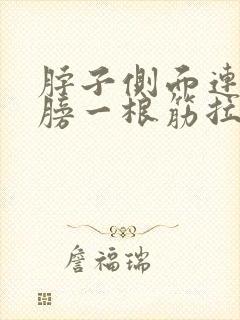 脖子側面連
膀一根筋拉
詹福瑞